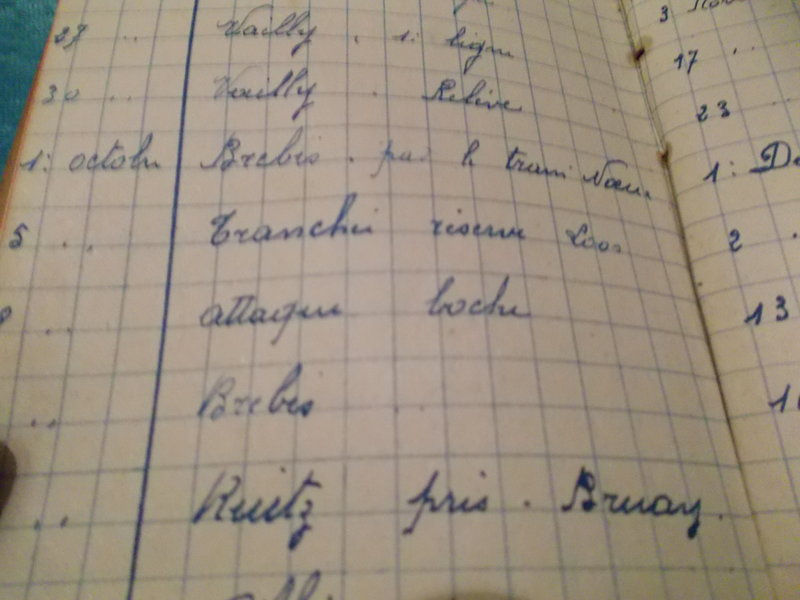 27 .. Vailly . 1: ligne
30 .. Vailly . Relève
1: octobre Brebis . par le train Nœux
5 .. Tranchée réserve Loos
8 .. attaque boche
.. Brebis
.. Ruitz près . Bruay.
3
17 ..
23
1:
2
13